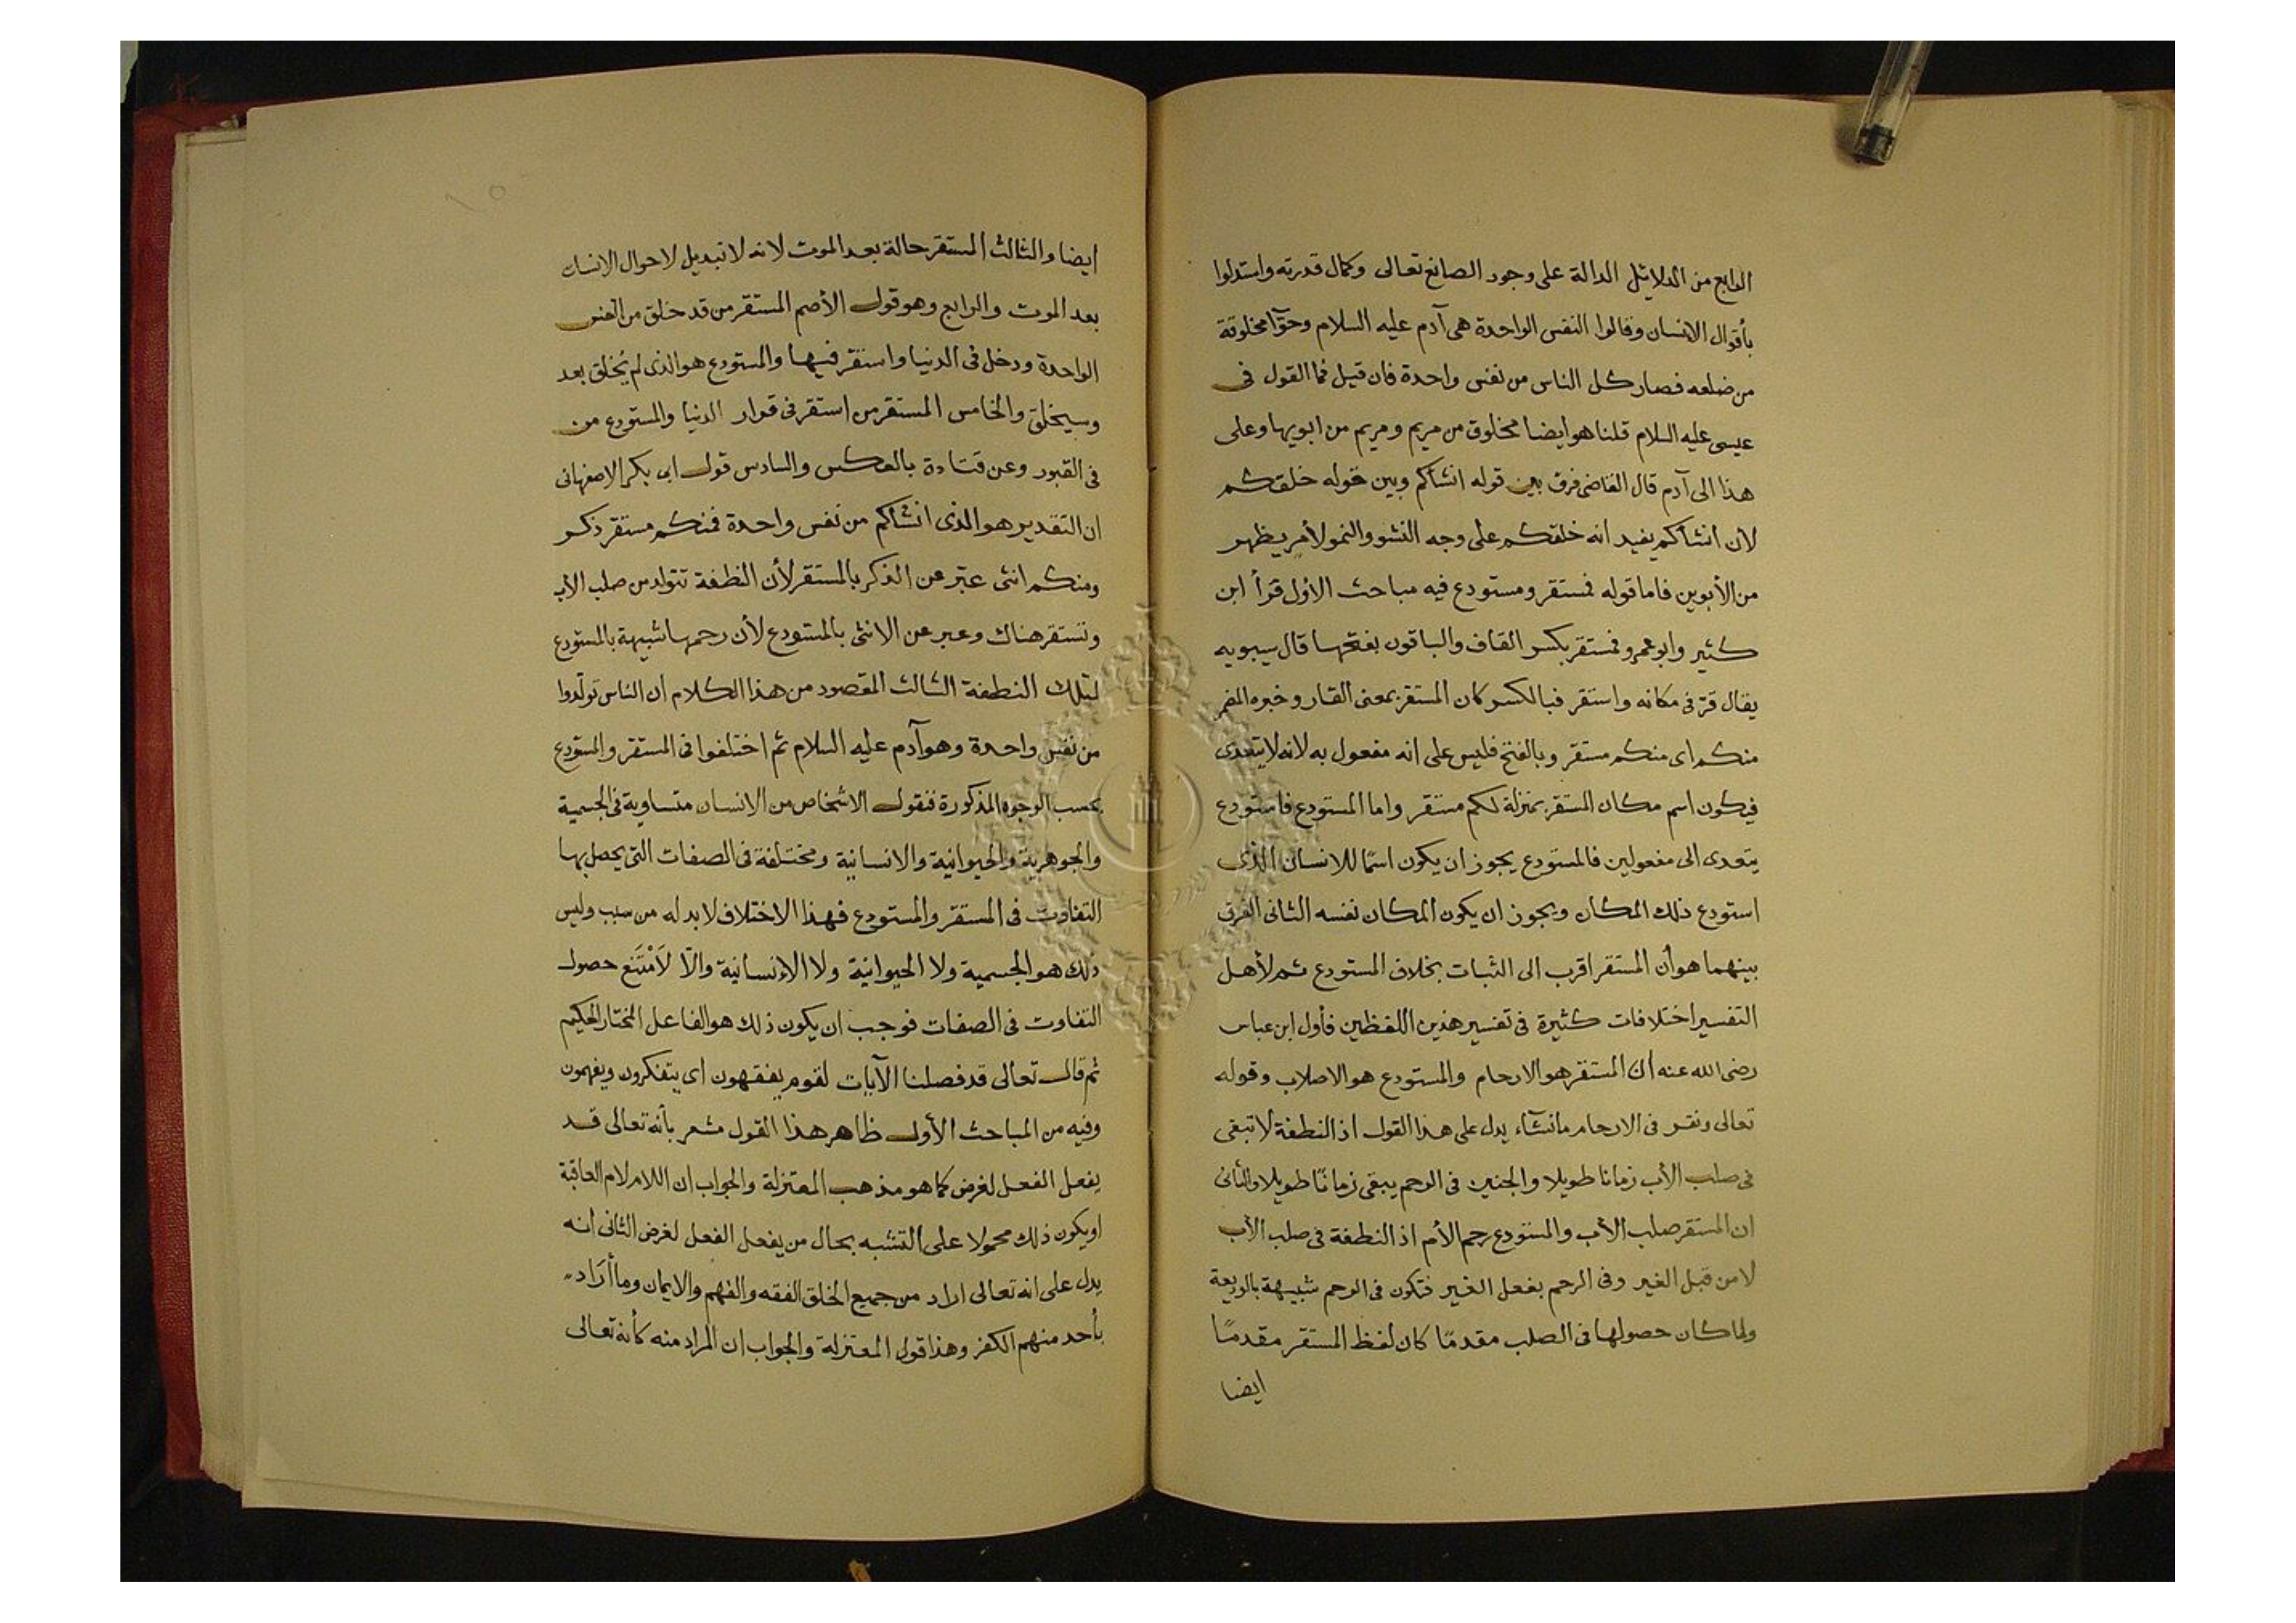 الرابع من الدلائل الدالة على وجود الصانع تعالى وكمال قدرته واستدلوا
بأقوال الانسان وقالوا النفس الواحدة هى آدم عليه السلام وحوّآ مخلوقة
من ضلعه فصار كل الناس من نفس واحدة فان قيل فما القول فى
عيسى عليه السلام قلنا هو ايضا مخلوق من مريم ومريم من ابويها وعلى
هذا الى آدم قال القاضى فرق بين قوله انشأكم وبين قوله خلقكم
لأن انشأكم يفيد انه خلقكم على وجه النشو والنمو لأمر يظهر
من الأبوين فاما قوله فمستقر ومستودع فيه مباحث الاول قرأ ابن
كثير وابو عمرو فمستقر بكسر القاف والباقون بفتحها قال سيبويه
يقال قرّ فى مكانه واستقر فبالكسر كان المستقر بمعنى القار وخبره المضمر
منكم اى منكم مستقر وبالفتح فليس على انه مفعول به لانه لا يتعدى
فيكون اسم مكان المستقر بمنزلة لكم مستقر واما المستودع فاستودع
يتعدى الى مفعولين فالمستودع يجوز ان يكون اسمًا للانسان الذى
استودع ذلك المكان ويجوز ان يكون المكان نفسه الثانى الفرق
بينهما هو أن المستقر اقرب الى الثبات بخلاف المستودع ثم لأهل
التفسير اختلافات كثيرة فى تفسير هذين اللفظين فأول ابن عباس
رضى الله عنه أن المستقر هو الارحام والمستودع هو الاصلاب وقوله
تعالى ونقر فى الارحام ما نشآء يدل على هذا القول اذ النطفة لا تبقى
فى صلب الأب زمانا طويلا والجنين فى الرحم يبقى زمانًا طويلا والثانى
ان المستقر صلب الأب والمستودع رحم الأم اذ النطفة فى صلب الأب
لا من قبل الغير وفى الرحم بفعل الغير فتكون فى الرحم شبيهة بالوديعة
ولما كان حصولها فى الصلب مقدمًا كان لفظ المستقر مقدمًا
ايضا
ايضا والثالث المستقر حالة بعد الموت لانه لا تبديل لاحوال الانسان
بعد الموت والرابع وهو قول الأصم المستقر من قد خلق من النفس
الواحدة ودخل فى الدنيا واستقر فيها والمستودع هو الذى لم يُخلق بعد
وسيخلق والخامس المستقر من استقر فى قرار الدنيا والمستودع من
فى القبور وعن قتادة بالعكس والسادس قول ابى بكر الاصفهانى
ان التقدير هو الذى انشأكم من نفس واحدة فمنكم مستقر ذكر
ومنكم انثى عبّر عن الذكر بالمستقر لأن النطفة تتولد من صلب الأب
وتستقر هناك وعبر عن الانثى بالمستودع لأن رحمها شبيهة بالمستودع
لتلك النطفة الثالث المقصود من هذا الكلام ان الناس تولّدوا
من نفس واحدة وهو آدم عليه السلام ثم اختلفوا فى المستقر والمستودع
بحسب الوجوه المذكورة فنقول الاشخاص من الانسان متساوية فى الجسمية
والجوهرية والحيوانية والانسانية ومختلفة فى الصفات التى يحصل بها
التفاوت فى المستقر والمستودع فهذا الاختلاف لا بد له من سبب وليس
ذلك هو الجسمية ولا الحيوانية ولا الانسانية والّا لَامْتَنَع حصول
التفاوت فى الصفات فوجب ان يكون ذلك هو الفاعل المختار الحكيم
ثم قال تعالى قد فصلنا الآيات لقوم يفقهون اى يتفكرون ويفهمون
وفيه من المباحث الأول ظاهر هذا القول مشعر بأنه تعالى قد
يفعل الفعل لغرض كما هو مذهب المعتزلة والجواب ان اللام لام العاقبة
او يكون ذلك محمولا على التشبه بحال من يفعل الفعل لغرض الثانى انه
يدل على انه تعالى اراد من جميع الخلق الفقه والفهم والايمان وما أرَاد
بأحد منهم الكفر وهذا قول المعتزلة والجواب ان المراد منه كأنه تعالى